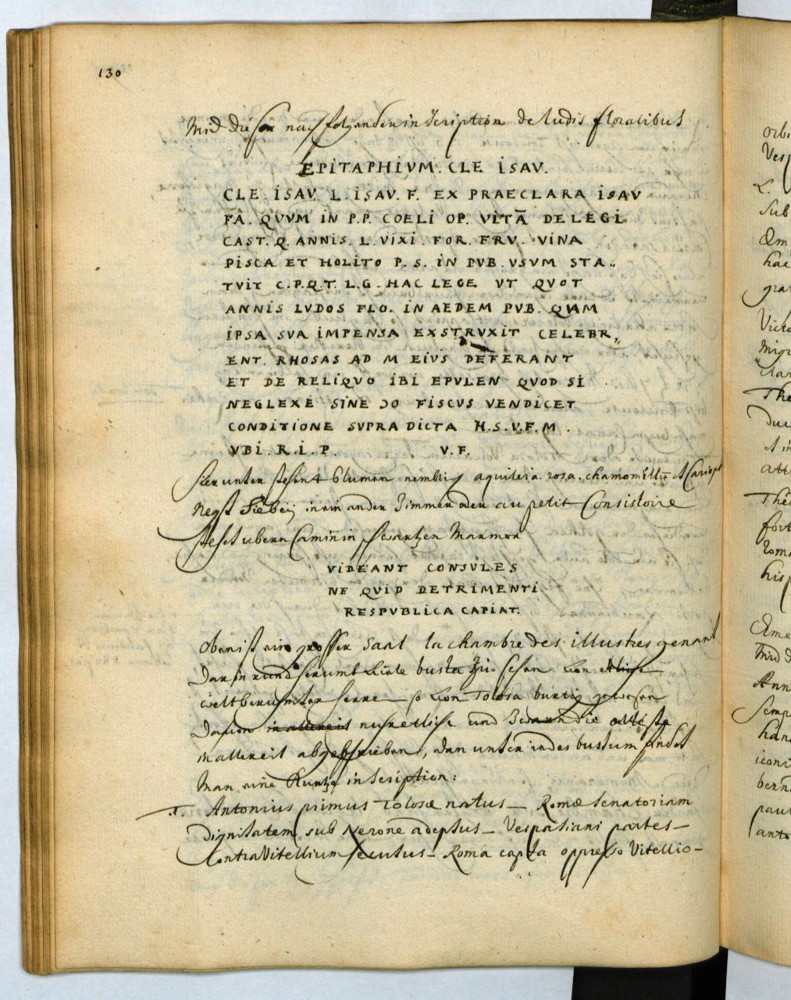 130
Und die nachfolgende inscription de ludis floralibus
EPITAPHIVM. CLE ISAV.
CLE. ISAV L. ISAV. F. EX PRAECLARA ISAV
FA. QVVM IN P.P. COELI OP. VITĀ DELEGI
CAST. Q. ANNIS. L. VIXI. FOR. FRV. VINA
PISCA ET HOLITO P. S. IN PVB. VSVM STA..
TVIT C.P.Q.T. L.G. HAC LEGE VT QVOT
ANNIS LVDOS FLO. IN AEDEM PVB. QVAM
IPSA SVA IMPENSA EXSTRVXIT CELEBR„
ENT. RHOSAS AD M EIVS DEFERANT
ET DE RELIQVO IBI EPVLEN QVOD SI
NEGLEXE SINE ƆO FISCVS VENDICET
CONDITIONE SVPRA DICTA H.S.V.F.M.
VBI. R.I.P. V.F.
hierunter stehn 4 blumen nemblich aquileia. rosa. chamomilla
negst hiebei in ein ander Zimmer oder au petit Consistoire
stehet ubern Camin in schwartzen Marmor
VIDEANT CONSVLES
NE QVID DETRIMENTI
RESPVBLICA CAPIAT.
Oben ist ein grosser Saal la chambre des illustres genant
Darin rund herumb busta zu sehen von
weltberumbter herren so von Tolosa burtig gewesen
Davon und die
abgeschrieben, dan unter iedes bustum findet
Man eine Kurtze inscription:
1. Antonius primus Tolosæ natus _ Romæ senatoriam
Dignitatem sub Nerone adeptus _ Vespasiani partes _
Contra Vitellium secutus _ Roma capta oppresso Vitellio _